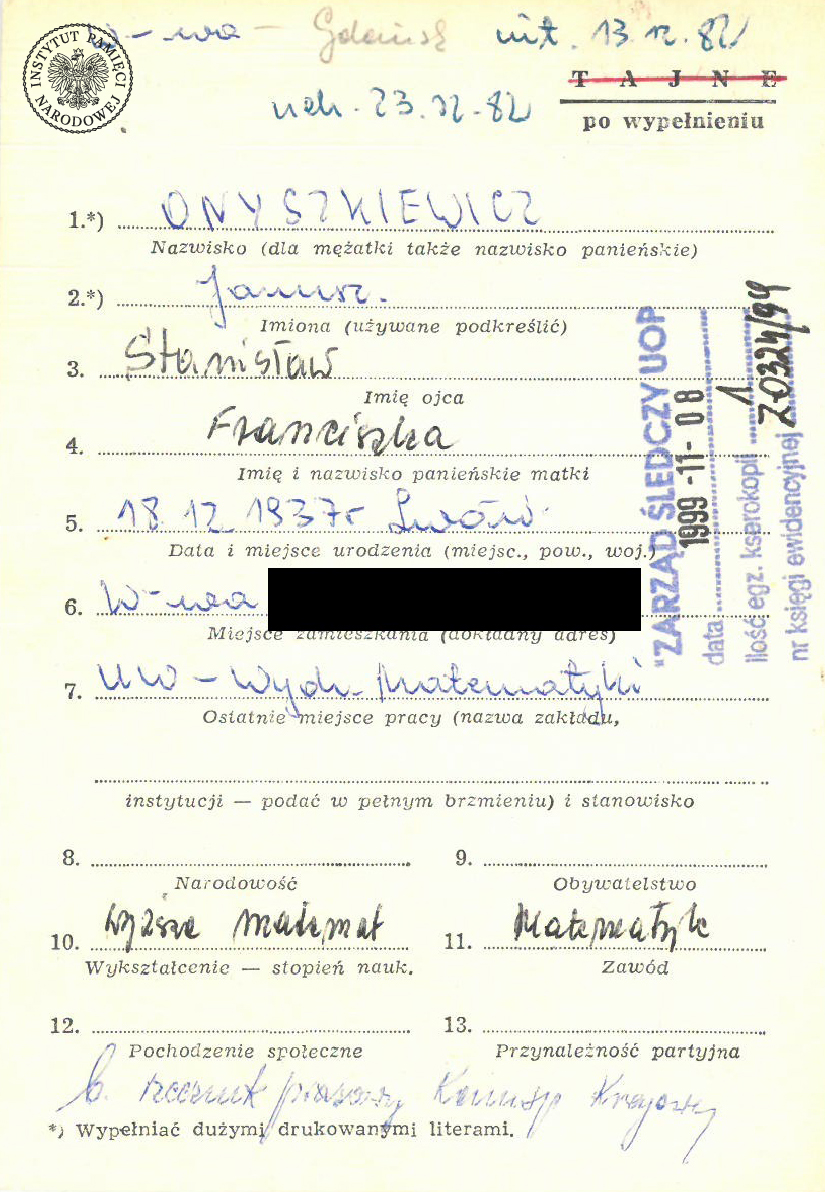 W-wa - Gdańsk int. 13.12.82
INSTYTUT PAMIĘCI NARODOWEJ
TAJNE
uch. 23.12.82
po wypełnieniu
1.*) ONYSZKIEWICZ
Nazwisko (dla mężatki także nazwisko panieńskie)
2.*) Janusz.
Imiona (używane podkreślić)
3. Stanisław
Imię ojca
4. Franciszka
Imię i nazwisko panieńskie matki
5. 18 12 1937r Lwów
Data i miejsce urodzenia (miejsc., pow., woj.)
6. W-wa
Miejsce zamieszkania (dokładny adres)
7. UW - Wydz. Matematyki
Ostatnie miejsce pracy (nazwa zakładu,
instytucji — podać w pełnym brzmieniu) i stanowisko
8. 9.
Narodowość Obywatelstwo
10. wyższe matemat 11. Matematyk
Wykształcenie — stopień nauk. Zawód
12. 13.
Pochodzenie społeczne Przynależność partyjna
b. rzecznik prasowy Komisji Krajowej
*) Wypełniać dużymi drukowanymi literami.
"ZARZĄD ŚLEDCZY UOP
data 1999-11-08
ilość egz. kserokopii 1
nr księgi ewidencyjnej Z0324/99